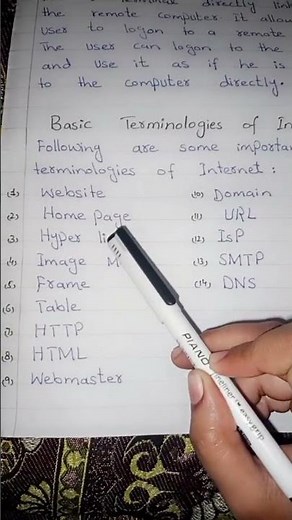 directly lin
the remote computer. It allow
user to logon to a remote
The user can logon to the
and use it as if he is
to the computer directly.
Basic Terminologies of In
Following are some importan
terminologies of Internet :
(1) Website
(2) Home Page
(3) Hyper li
(4) Image M
(5) Frame
(6) Table
(7) HTTP
(8) HTML
(9) Webmaster
(10) Domain
(11) URL
(12) IsP
(13) SMTP
(14) DNS
PIANO